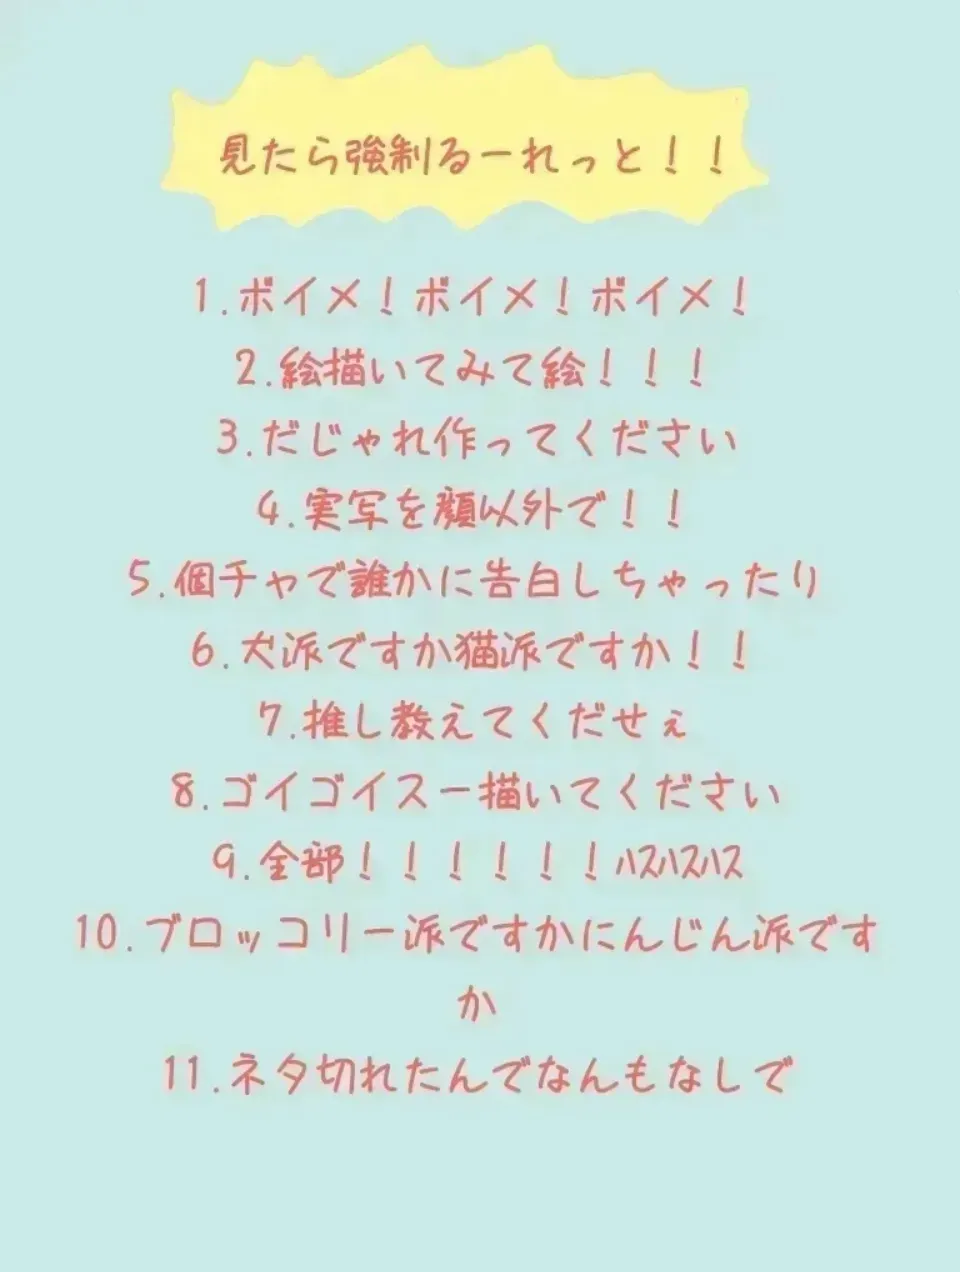 見たら強制るーれっと！！
1.ボイメ！ボイメ！ボイメ！
2.絵描いてみて絵！！！
3.だじゃれ作ってください
4.実写を顔以外で！！
5.個チャで誰かに告白しちゃったり
6.犬派ですか猫派ですか！！
7.推し教えてくだせぇ
8.ゴイゴイスー描いてください
9.全部！！！！！！ﾊｽﾊｽﾊｽ
10.ブロッコリー派ですかにんじん派です
か
11.ネタ切れたんでなんもなしで